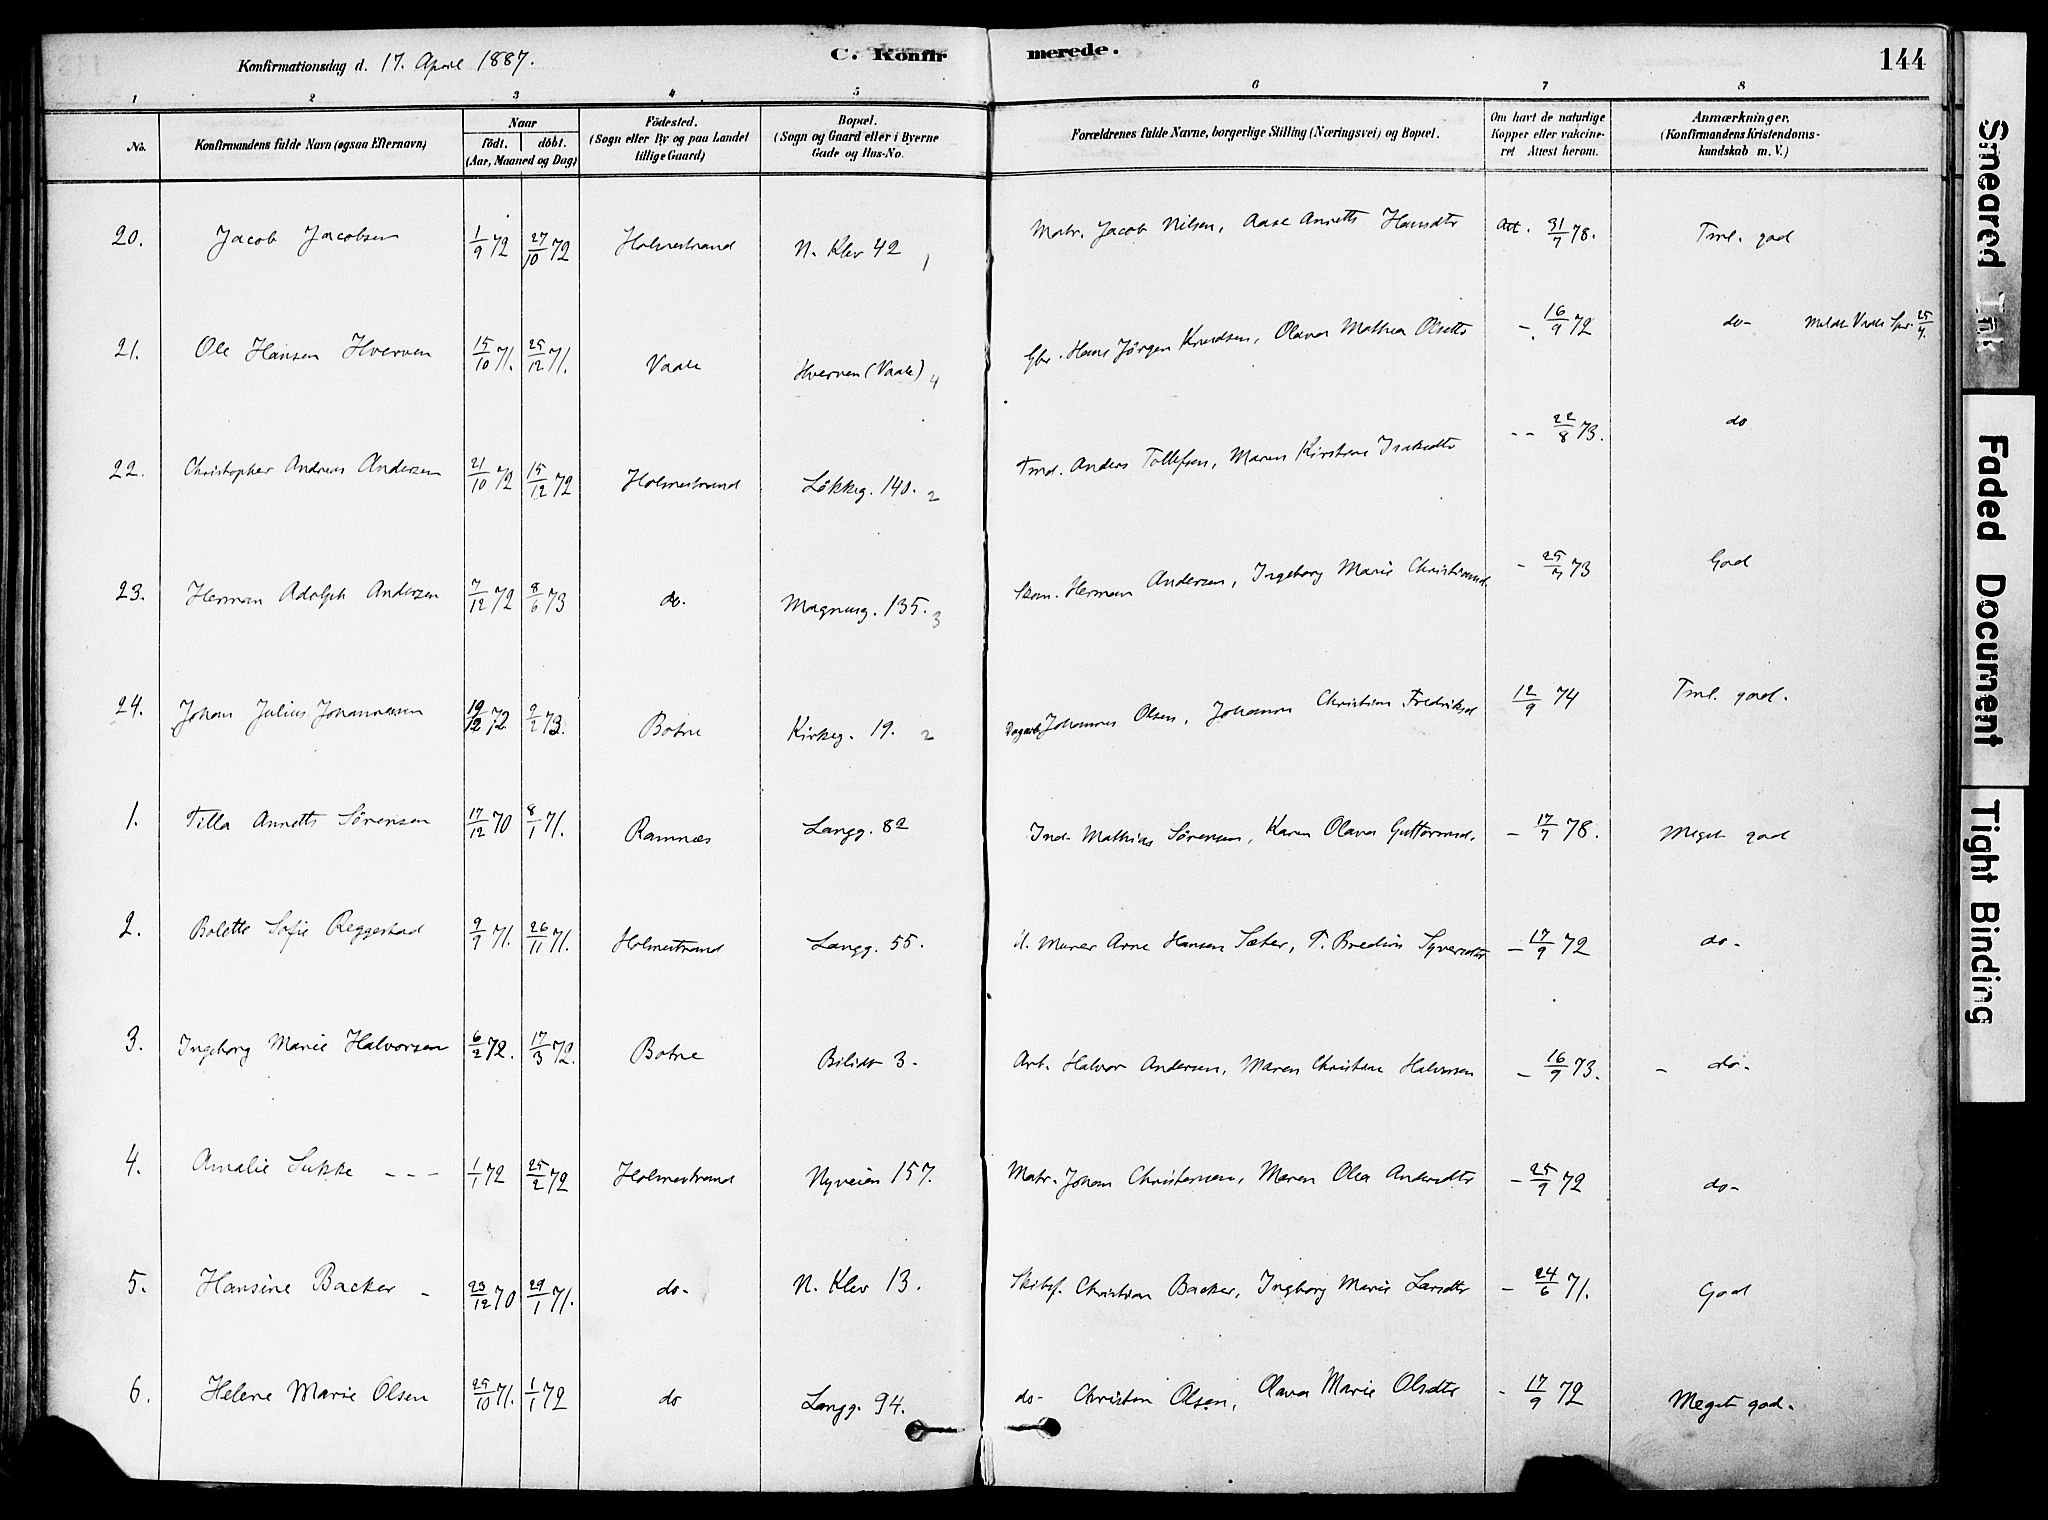 Konfirmationsdag d. 17. April 1887. C. Konfir merede. 144
1 2 3 4 5 6 7 8
No. Konfirmandens fulde Navn (ogsaa Efternavn) Naar Födt. döbt. (Aar, Maaned og Dag) Födested. (Sogn eller By og paa Landet tillige Gaard) Bopæl. (Sogn og Gaard eller i Byerne Gade og Hus-No. Forældrenes fulde Navne, borgerlige Stilling (Næringsvei) og Bopæl. Om havt de naturlige Kopper eller vakcineret Attest herom. Anmærkninger. (Konfirmandens Kristendomskundskab m. V.)
20. Jacob Jacobsen 1/9 72 27/10 72 Holmestrand N. Klev 42 1 Matr. Jacob Nilsen, Aase Annette Hansdtr Att. 31/7 78. Tml. god
21. Ole Hansen Hverven 15/10 71. 25/12 71. Vaale Hverven (Vaale) 4 Gbr. Hans Jørgen Knudsen, Olava Mathea Olsdtr - 16/9 72 do- Meldt Vaale Spr. 25/4.
22. Christopher Andreas Andersen 21/10 72 15/12 72 Holmestrand Løkkeg. 140. 2 Tmd. Anders Tollefsen, Maren Kirstine Isaksdtr -- 22/8 73. do
23. Herman Adolph Andersen 7/12 72 8/6 73 do. Magnusg. 135. 3 Skom. Herman Andersen, Ingeborg Marie Christiansd. - 25/7 73 God
24. Johan Julius Johannessen 19/12 72 2/2 73. Botne Kirkeg. 19. 2 Dagarb. Johannes Olsen, Johanne Christine Fredriksd 12/9 74 Tml. god.
1. Tilla Annette Sørensen 17/12 70 8/1 71. Ramnæs Langg. 82 Ind. Mathias Sørensen, Karen Olava Guttormsd. - 17/7 78. Meget god
2. Bolette Sofie Reggestad 9/9 71. 26/11 71. Holmestrand Langg. 55. U. Murer Arne Hansen Sæter, T. Bredine Syversdtr - 17/9 72 do-
3. Ingeborg Marie Halvorsen 6/2 72. 17/3 72. Botne Bilidt 3. Arb. Halvor Andersen, Maren Christine Halvorsen - 16/9 73. - do.
4. Amalie Sukke --- 1/1 72 25/2 72 Holmestrand Nyveien 157. Matr. Johan Christensen, Maren Olea Andersdtr - 25/9 72 do-
5. Hansine Backer - 23/12 70 29/1 71. do- N. Klev 13. Skibsf. Christian Backer, Ingeborg Marie Larsdtr - 24/6 71. God
6. Helene Marie Olsen 29/10 71. 1/1 72 do Langg. 94. do- Christian Olsen, Olava Marie Olsdtr - 17/9 72 Meget god.
Smeared Ink
Faded Document
Tight Binding